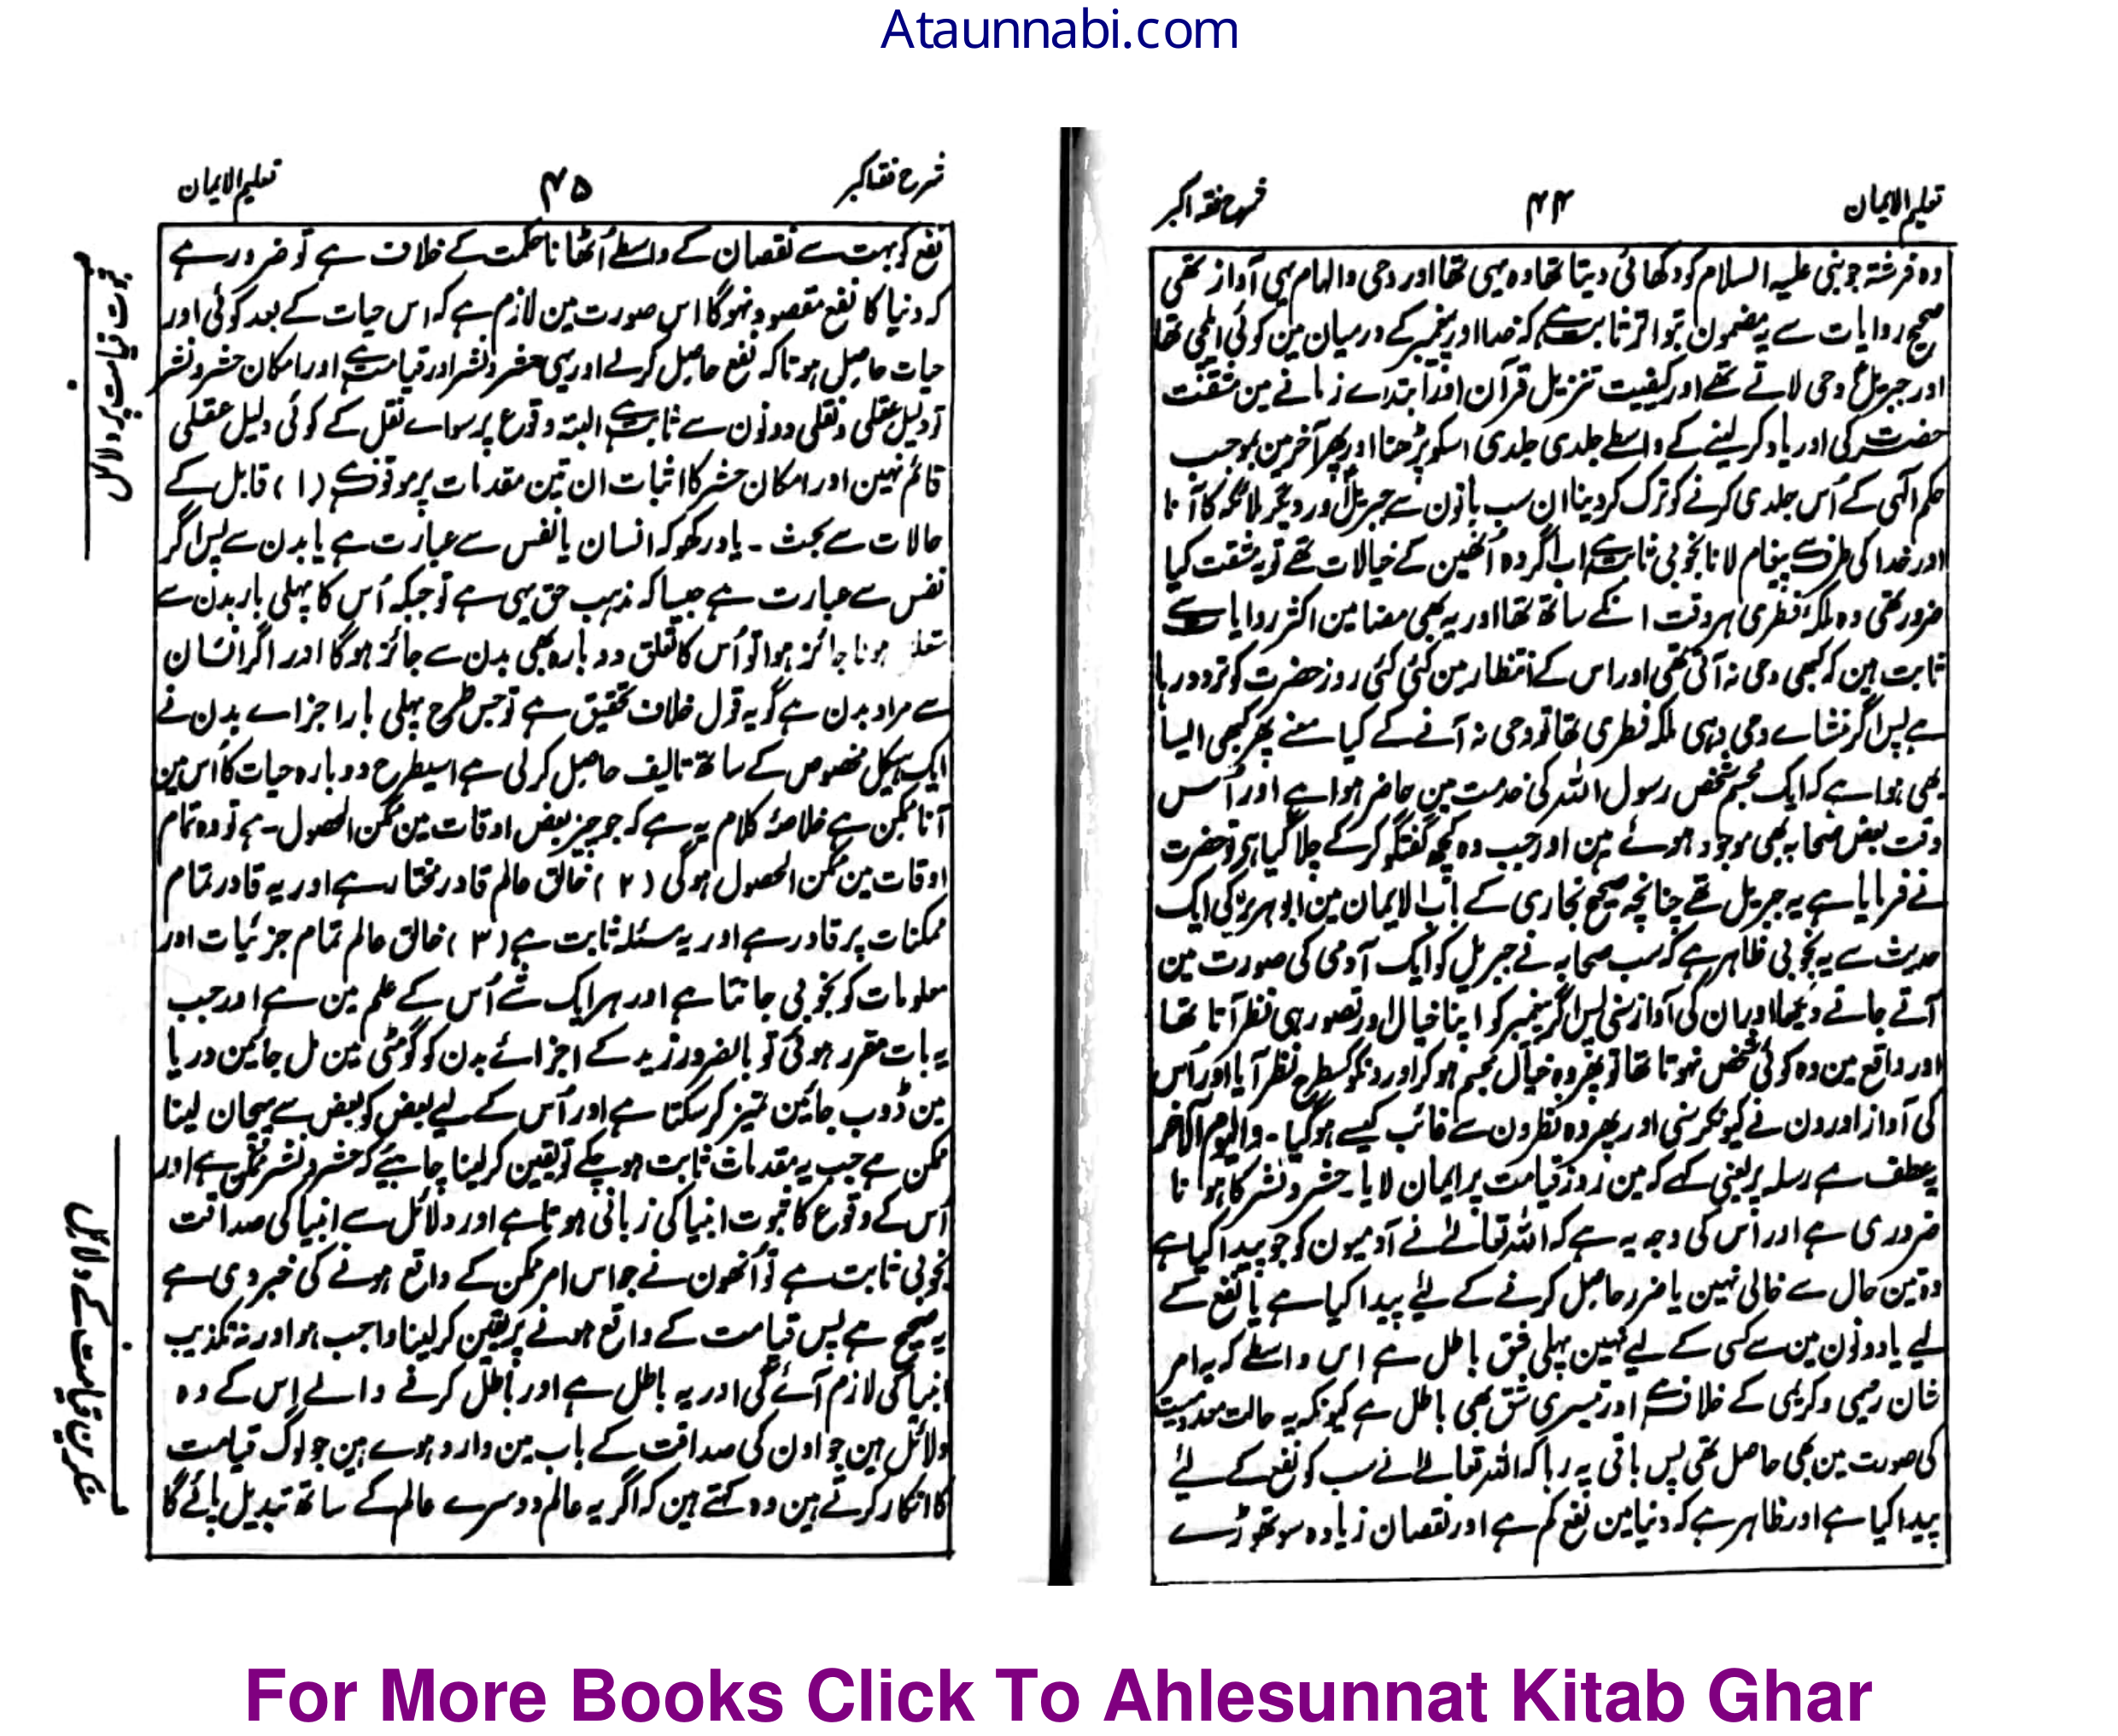 Ataunnabi.com
تعلیم الایمان
۴۴
شرح فقہ اکبر
وہ فرشتہ جو نبی علیہ السلام کو دکھائی دیتا تھا وہ یہی تھا اور وحی والہام یہی آواز تھی
صحیح روایات سے یہ مضمون بتواتر ثابت ہے کہ خدا اور پیغمبر کے درمیان مین کوئی ایلچی تھا
اور جبریل وحی لاتے تھے اور کیفیت تنزیل قرآن اور ابتداے زمانے مین مشقت
حضرت کی اور یاد کر لینے کے واسطے جلدی جلدی اسکو پڑھنا اور پھر آخر مین بموجب
حکم الٰہی کے اُس جلدی کرنے کو ترک کردینا ان سب باتون سے جبریل اور دیگر ملائکہ کا آنا
اور خدا کی طرف سے پیغام لانا بخوبی ثابت ہے اب اگر وہ اُنھین کے خیالات تھے تو یہ مشقت کیا
ضرور تھی وہ ملکۂ فطری ہر وقت انکے ساتھ تھا اور یہ بھی مضامین اکثر روایات سے
ثابت ہین کہ کبھی وحی نہ آتی تھی اور اس کے انتظار مین کئی کئی روز حضرت کو تردد رہا
ہے پس اگر منشاے وحی وہی ملکہ فطری تھا تو وحی نہ آنے کے کیا معنے پھر کبھی ایسا
بھی ہوا ہے کہ ایک مجسم شخص رسول اللہ کی خدمت مین حاضر ہوا ہے اور اُس
وقت بعض صحابہ بھی موجود ہوئے ہین اور جب وہ کچھ گفتگو کرکے چلا گیا ہے تو حضرت
نے فرمایا ہے یہ جبریل تھے چنانچہ صحیح بخاری کے باب الایمان مین ابو ہریرہ کی ایک
حدیث سے یہ بخوبی ظاہر ہے کہ سب صحابہ نے جبریل کو ایک آدمی کی صورت مین
آتے جاتے دیکھا اور ان کی آواز سنی پس اگر پیغمبر کو اپنا خیال اور تصور ہی نظر آتا تھا
اور واقع مین وہ کوئی شخص نہوتا تھا تو پھر وہ خیال مجسم ہوکر اورونکو کسطرح نظر آیا اور اُس
کی آواز اورون نے کیونکر سنی اور پھر وہ نظرون سے غائب کیسے ہوگیا ۔ والیوم الآخر
یہ عطف ہے رسلہ پر یعنی کہے کہ مین روز قیامت پر ایمان لایا ۔ حشر و نشر کا ہونا
ضروری ہے اور اُس کی وجہ یہ ہے کہ اللہ تعالےٰ نے آدمیون کو جو پیدا کیا ہے
وہ تین حال سے خالی نہین یا ضرر حاصل کرنے کے لیے پیدا کیا ہے یا نفع کے
لیے یا دونون مین سے کسی کے لیے نہین پہلی شق باطل ہے اس واسطے کہ یہ امر
شان رحیمی و کریمی کے خلاف ہے اور تیسری شق بھی باطل ہے کیونکہ یہ حالت معدومیت
کی صورت مین بھی حاصل تھی پس باقی یہ رہا کہ اللہ تعالےٰ نے سب کو نفع کے لیے
پیدا کیا ہے اور ظاہر ہے کہ دنیا مین نفع کم ہے اور نقصان زیادہ سو تھوڑے
شرح فقہ اکبر
۴۵
تعلیم الایمان
نفع کو بہت سے نقصان کے واسطے اُٹھانا حکمت کے خلاف ہے تو ضرور ہے
کہ دنیا کا نفع مقصود نہوگا اس صورت مین لازم ہے کہ اس حیات کے بعد کوئی اور
حیات حاصل ہو تاکہ نفع حاصل کرلے اور یہی حشر و نشر اور قیامت ہے اور امکان حشر و نشر
تو دلیل عقلی و نقلی دونون سے ثابت ہے البتہ وقوع پر سواے نقل کے کوئی دلیل عقلی
قائم نہین اور امکان حشر کا اثبات ان تین مقدمات پر موقوف ہے (۱) قابل کے
حالات سے بحث ۔ یاد رکھو کہ انسان یا نفس سے عبارت ہے یا بدن سے پس اگر
نفس سے عبارت ہے جیسا کہ مذہب حق یہی ہے تو جبکہ اُس کا پہلی بار بدن سے
متعلق ہونا جائز ہوا تو اُس کا تعلق دوبارہ بھی بدن سے جائز ہوگا اور اگر انسان
سے مراد بدن ہے گو یہ قول خلاف تحقیق ہے تو جس طرح پہلی بار اجزاے بدن نے
ایک ہیکل مخصوص کے ساتھ تالیف حاصل کرلی ہے اسیطرح دوبارہ حیات کا اُس مین
آنا ممکن ہے خلاصۂ کلام یہ ہے کہ جو چیز بعض اوقات مین ممکن الحصول ہے تو وہ تمام
اوقات مین ممکن الحصول ہوگی (۲) خالق عالم قادر مختار ہے اور یہ قادر تمام
ممکنات پر قادر ہے اور یہ مسئلہ ثابت ہے (۳) خالق عالم تمام جزئیات اور
معلومات کو بخوبی جانتا ہے اور ہر ایک شے اُس کے علم مین ہے اور جب
یہ بات مقرر ہوئی تو بالضرور زید کے اجزائے بدن کو گو مٹی مین مل جائین دریا
مین ڈوب جائین تمیز کرسکتا ہے اور اُس کے لیے بعض کو بعض سے پہچان لینا
ممکن ہے جب یہ مقدمات ثابت ہوچکے تو یقین کرلینا چاہیئے کہ حشر و نشر ممکن ہے اور
اُس کے وقوع کا ثبوت انبیا کی زبانی ہوتا ہے اور دلائل سے انبیا کی صداقت
بخوبی ثابت ہے تو اُنھون نے جو اس امر ممکن کے واقع ہونے کی خبر دی ہے
یہ صحیح ہے پس قیامت کے واقع ہونے پر یقین کرلینا واجب ہوا ورنہ تکذیب
انبیا کی لازم آئے گی اور یہ باطل ہے اور باطل کرنے والے اِس کے وہ
دلائل ہین جو اون کی صداقت کے باب مین وارد ہوے ہین جو لوگ قیامت
کا انکار کرتے ہین وہ کہتے ہین کہ اگر یہ عالم دوسرے عالم کے ساتھ تبدیل پائے گا
ثبوت قیامت پر دلائل
منکرین قیامت کے دلائل
For More Books Click To Ahlesunnat Kitab Ghar